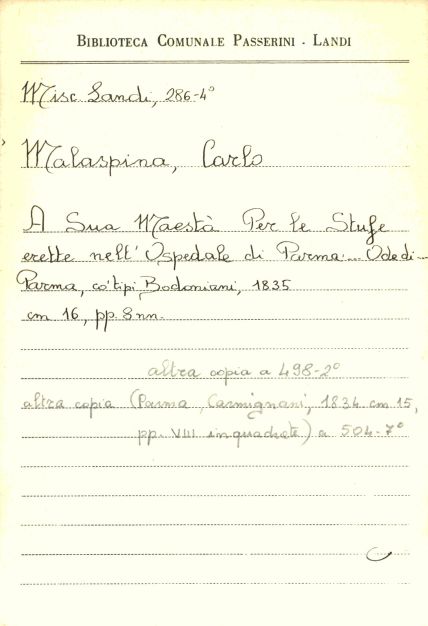 BIBLIOTECA COMUNALE PASSERINI - LANDI
Misc Landi, 286-4°
Malaspina, Carlo
A Sua Maestà Per le Stufe
erette nell'Ospedale di Parma.... Ode di...
Parma, co'tipi Bodoniani, 1835
cm 16, pp. 8 nn.
altra copia a 498-2°
altra copia (Parma, Carmignani, 1834 cm 15,
pp. VIII inquadrate) a 504-7°